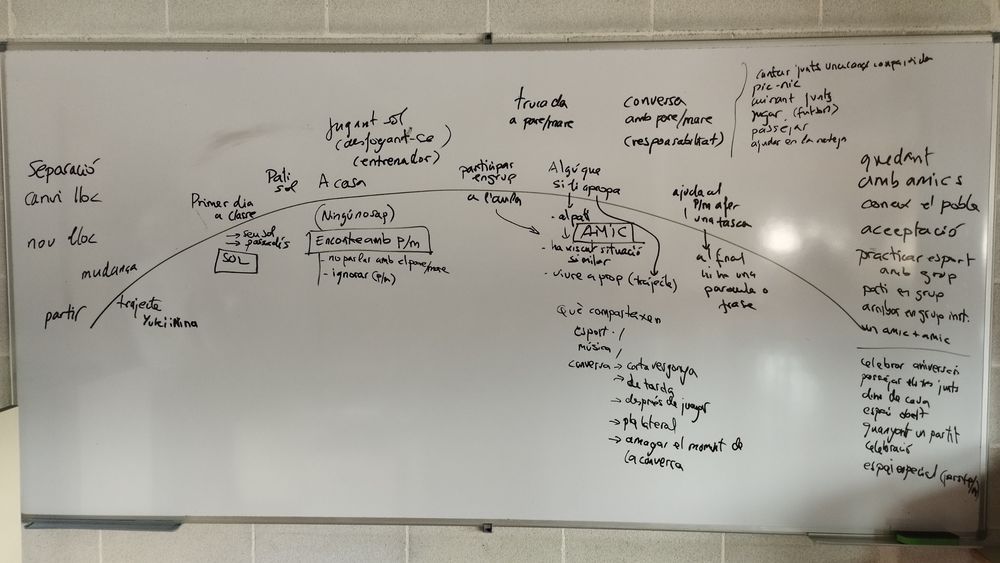 Separació
canvi lloc
nou lloc
mudança
partir
trajecte
Yuki i Nina
Primer dia
a classe
→ seu sol
→ passadís
SOL
Pati
sol
jugant sol
(desfogant-se)
(entrenador)
A casa
(Ningú no sap)
Enconte amb P/m
- no parlar amb el pare/mare
- ignorar (P/m)
trucada
a pare/mare
participar
en grup
a l'aula
Algú que
si li apropa
- al pati
AMIC
- ha viscut situació
similar
- viure a prop (trajecte)
Què comparteixen
esport
música
conversa → certa vergonya
→ de tarda
→ després de jugar
→ pla lateral
→ amagar el moment de
la conversa
conversa
amb pare/mare
(responsabilitat)
ajuda al
P/m a fer
una tasca
al final
hi ha una
paraula o
frase
cantar junts una cançó compartida
pic-nic
cuinant junts
jugar (futbol)
passejar
ajudar en la neteja
quedant
amb amics
coneix el poble
acceptació
practicar esport
amb grup
pati en grup
arribar en grup inst.
un amic + amic
celebrar aniversari
passejar els tres junts
espai obert
guanyant un partit
celebració
espai especial